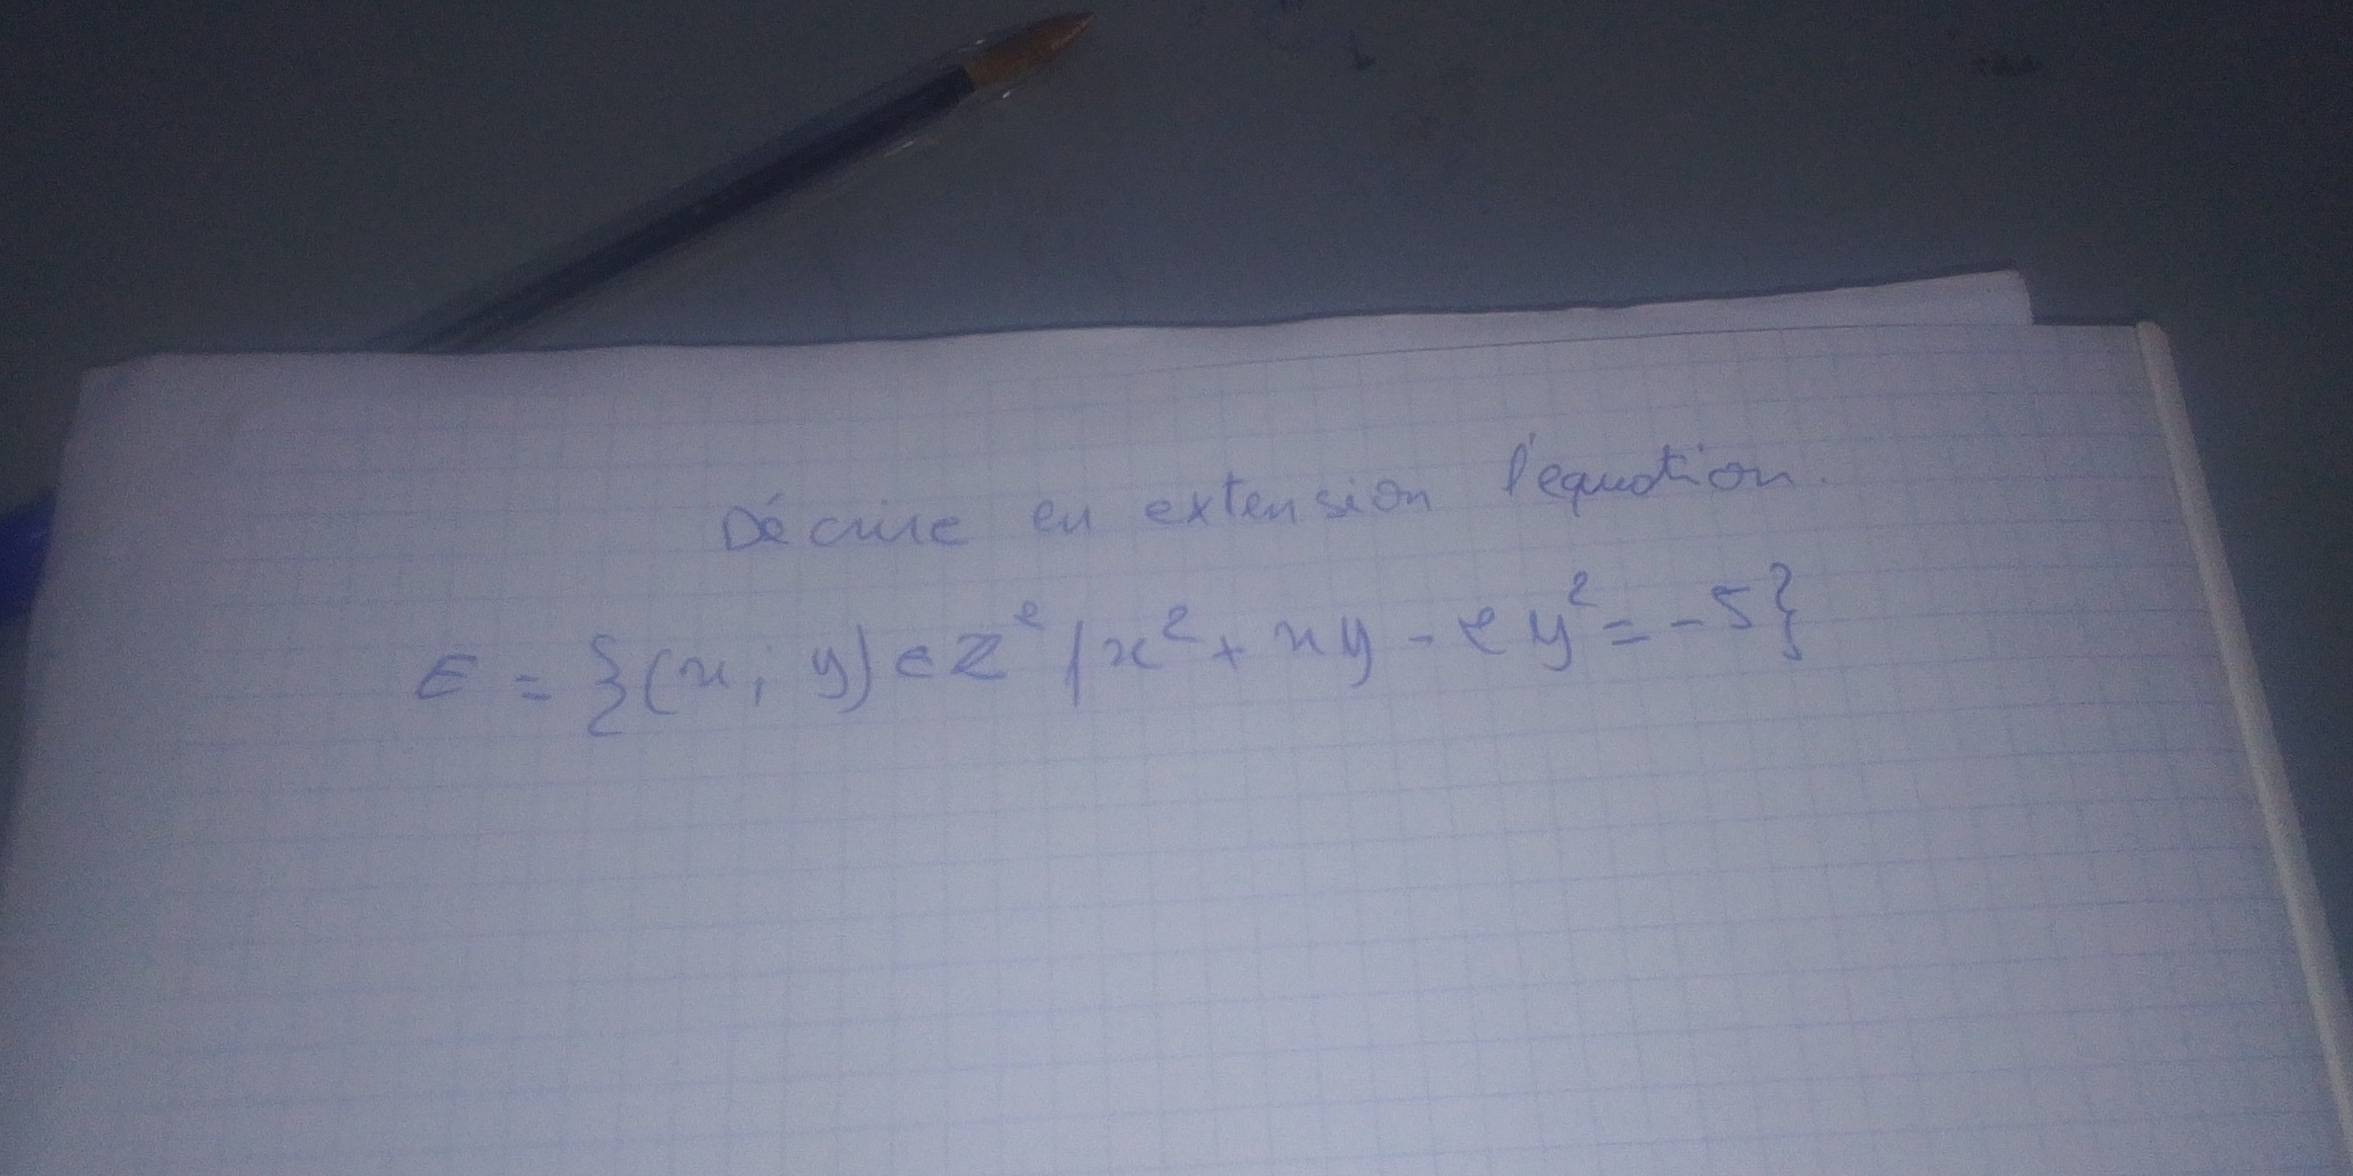 Décrire en extension l'equation.
E = {(x; y) ∈ ℤ² / x² + xy - 2y² = -5}